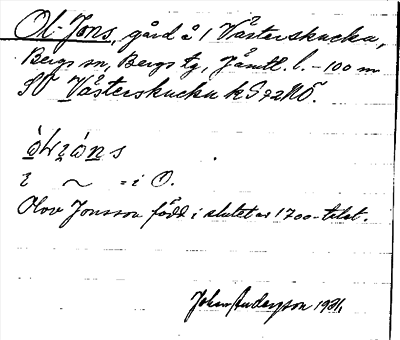 Ol-Jons, gård å / Västerskucku,
Bergs sn, Bergs tg, Jämtl. l. – 100 m
SV Västerskucku kS 72 NÖ.
i ~ = i O.
Olov Jonsson född i slutet av 1700-talet.
Johan Anderson 1931.